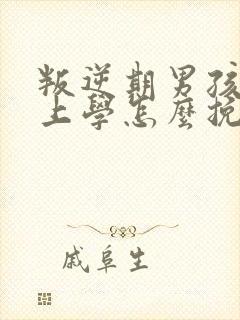 叛逆期男孩
上學怎麼挽
戚阜生